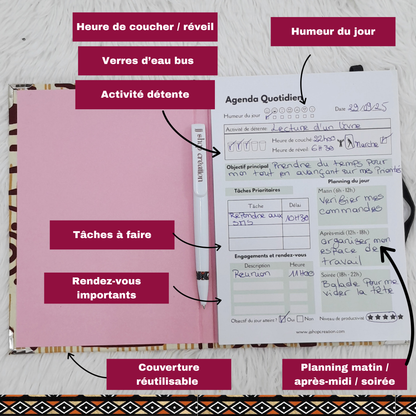 Heure de coucher / réveil
Verres d'eau bus
Activité détente
Humeur du jour
Agenda Quotidien
Date 29/09/25
Humeur du jour
Activité de détente : Lecture d'un livre
Heure de coucher : 22h00
Heure de réveil : 6H30
Marche
Objectif principal Prendre du temps pour
moi tout en avançant sur mes priorités
Planning du jour
Tâches Prioritaires
Tâche Délai
Répondre aux SMS 10H30
Matin (6h - 12h)
Vérifier mes
commandes
Après-midi (12h - 18h)
organiser mon
espace de
travail
Engagements et rendez-vous
Description Heure
Réunion 11H00
Soirée (18h - 22h)
Balade pour me
vider la tête
Objectif du jour atteint ? Oui Non
Niveau de productivité
Tâches à faire
Rendez-vous
importants
Couverture
réutilisable
Planning matin /
après-midi / soirée